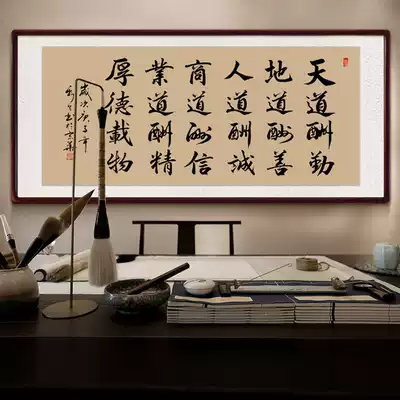 天道酬勤
地道酬善
人道酬誠
商道酬信
業道酬精
厚德載物
歲次庚子年